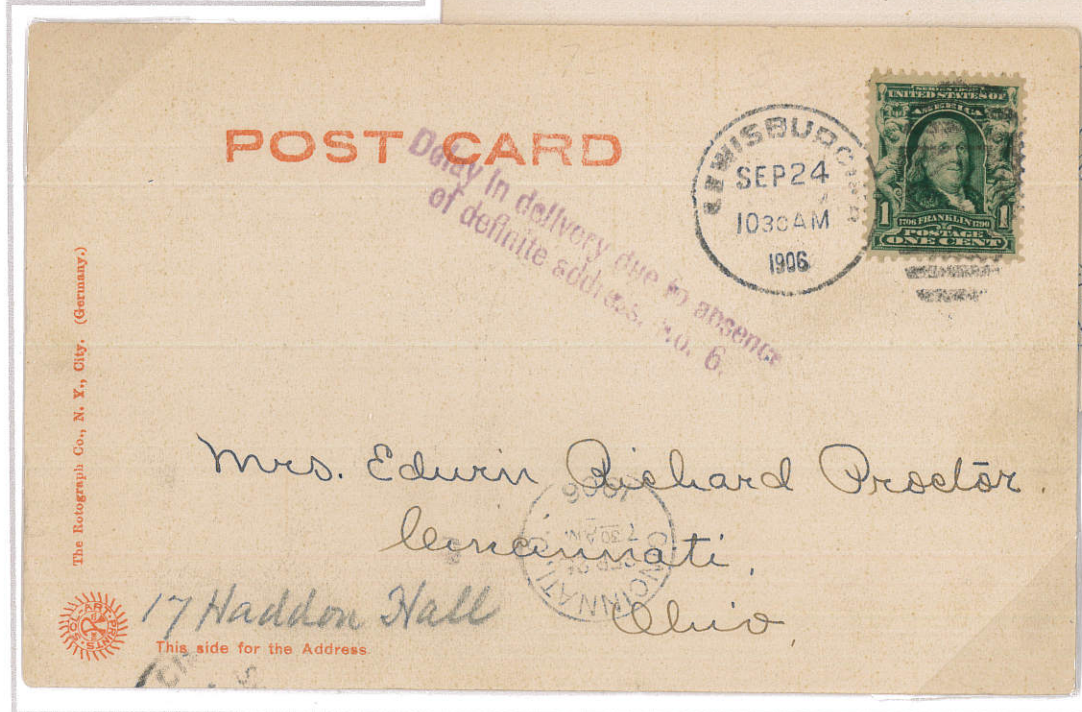 POST CARD
Delay in delivery due to absence
of definite address. No. 6.
LEWISBURG
SEP 24
1030 AM
1906
SERIES 1902
UNITED STATES OF
AMERICA
1 1706 FRANKLIN 1790 1
POSTAGE
ONE CENT
The Rotograph Co., N. Y., City. (Germany.)
Mrs. Edwin Richard Proctor.
Cincinnati,
Ohio,
CINCINNATI
7 30 AM
1906
17 Haddon Hall
SOL-ART PRINTS
This side for the Address